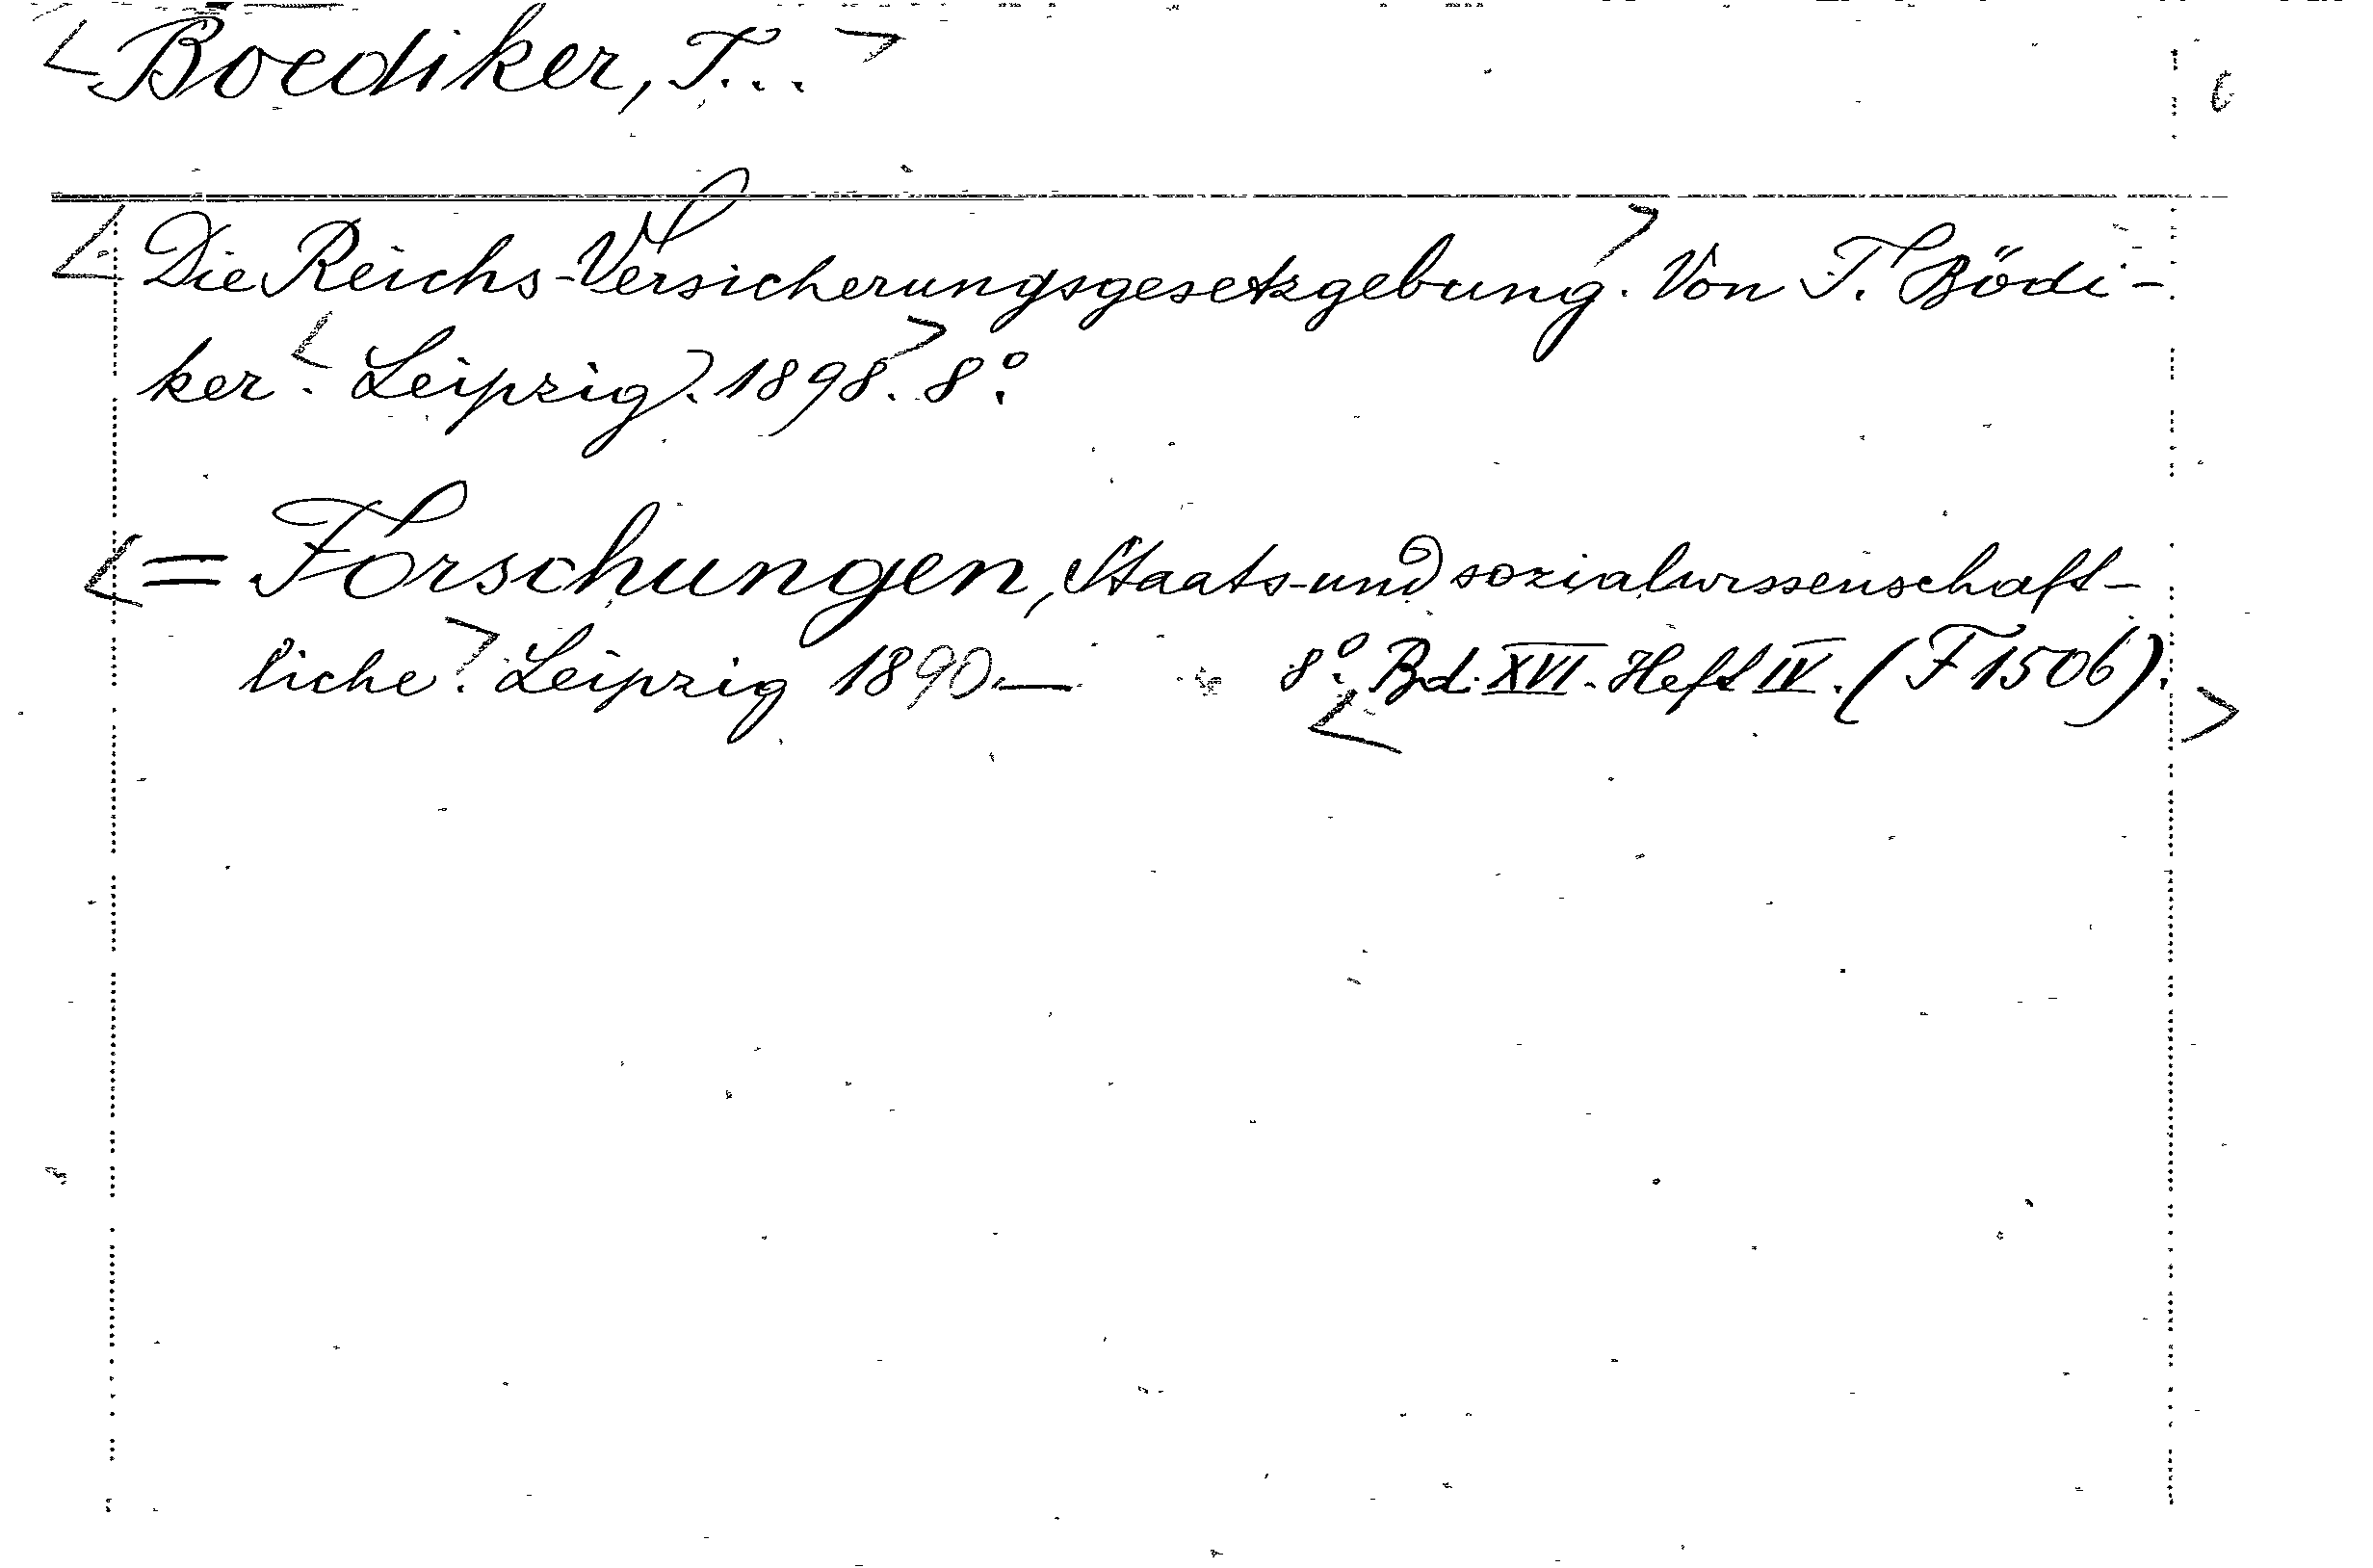 <Boediker, T... >
<Die Reichs-Versicherungsgesetzgebung>. Von T. Bödi-
ker. <Leipzig. 1898.> 8°.
<= Forschungen, Staats- und sozialwissenschaft-
liche>. Leipzig 1890— 8°. <Bd. XVI. Heft IV. (F 1506).>